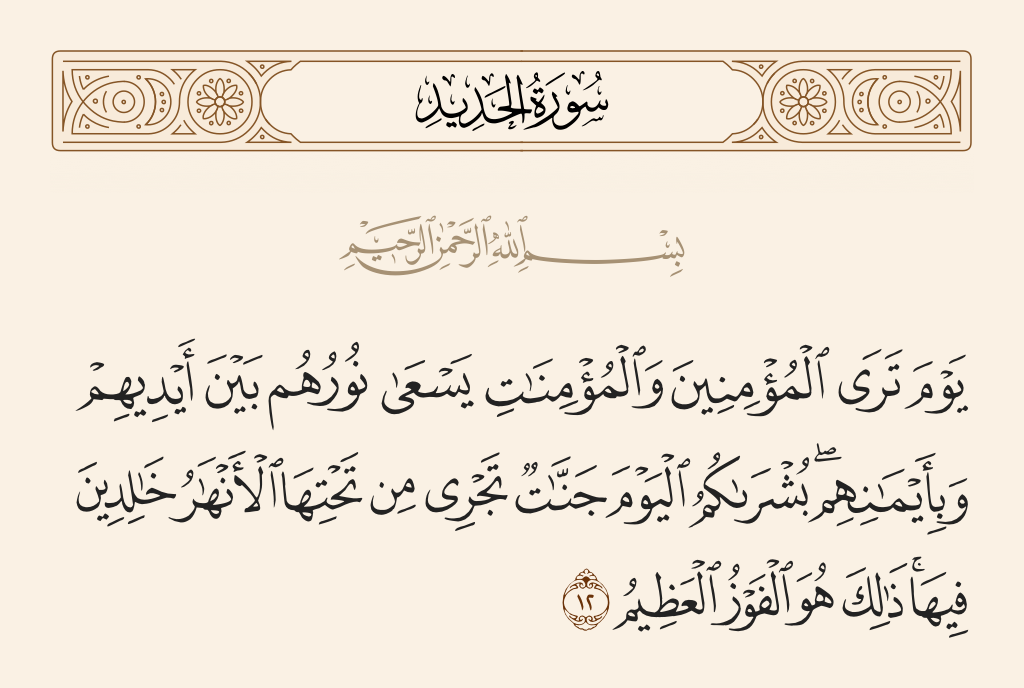 سُورَةُ الحَدِيدِ
بِسْمِ ٱللَّهِ ٱلرَّحْمَٰنِ ٱلرَّحِيمِ
يَوْمَ تَرَى ٱلْمُؤْمِنِينَ وَٱلْمُؤْمِنَٰتِ يَسْعَىٰ نُورُهُم بَيْنَ أَيْدِيهِمْ
وَبِأَيْمَٰنِهِمۖ بُشْرَىٰكُمُ ٱلْيَوْمَ جَنَّٰتٌ تَجْرِى مِن تَحْتِهَا ٱلْأَنْهَٰرُ خَٰلِدِينَ
فِيهَاۚ ذَٰلِكَ هُوَ ٱلْفَوْزُ ٱلْعَظِيمُ ١٢